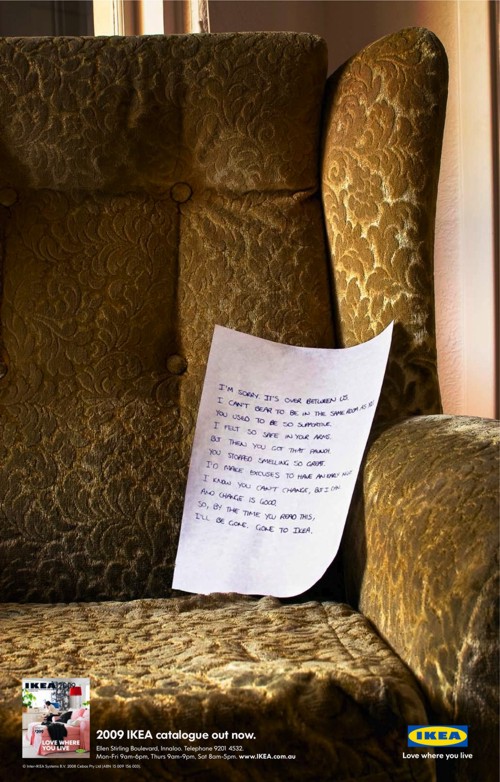 I'M SORRY. IT'S OVER BETWEEN US.
I CAN'T BEAR TO BE IN THE SAME ROOM AS YOU
YOU USED TO BE SO SUPPORTIVE.
I FELT SO SAFE IN YOUR ARMS.
BUT THEN YOU GOT THAT PAUNCH.
YOU STOPPED SMELLING SO GREAT.
I'D MAKE EXCUSES TO HAVE AN EARLY NIGHT.
I KNOW YOU CAN'T CHANGE, BUT I CAN.
AND CHANGE IS GOOD.
SO, BY THE TIME YOU READ THIS,
I'LL BE GONE. GONE TO IKEA.
IKEA 2009
LOVE WHERE
YOU LIVE
2009 IKEA catalogue out now.
Ellen Stirling Boulevard, Innaloo. Telephone 9201 4532.
Mon-Fri 9am-6pm, Thurs 9am-9pm, Sat 8am-5pm. www.IKEA.com.au
© Inter IKEA Systems B.V. 2008 Cebas Pty Ltd
IKEA
Love where you live